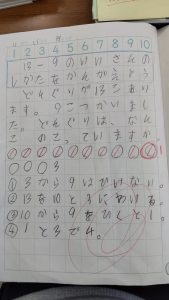 1 2 3 4 5 6 7 8 9 10
13-9のけいさんの
しかたをかんがえよう
どんぐりが13こあり
ます。9こつかいまし
た。どんぐりは、なん
このこっていますか。
3
①3から9はひけない。
②13を10と3にわける。
③10から9をひくと1。
④1と3で4。